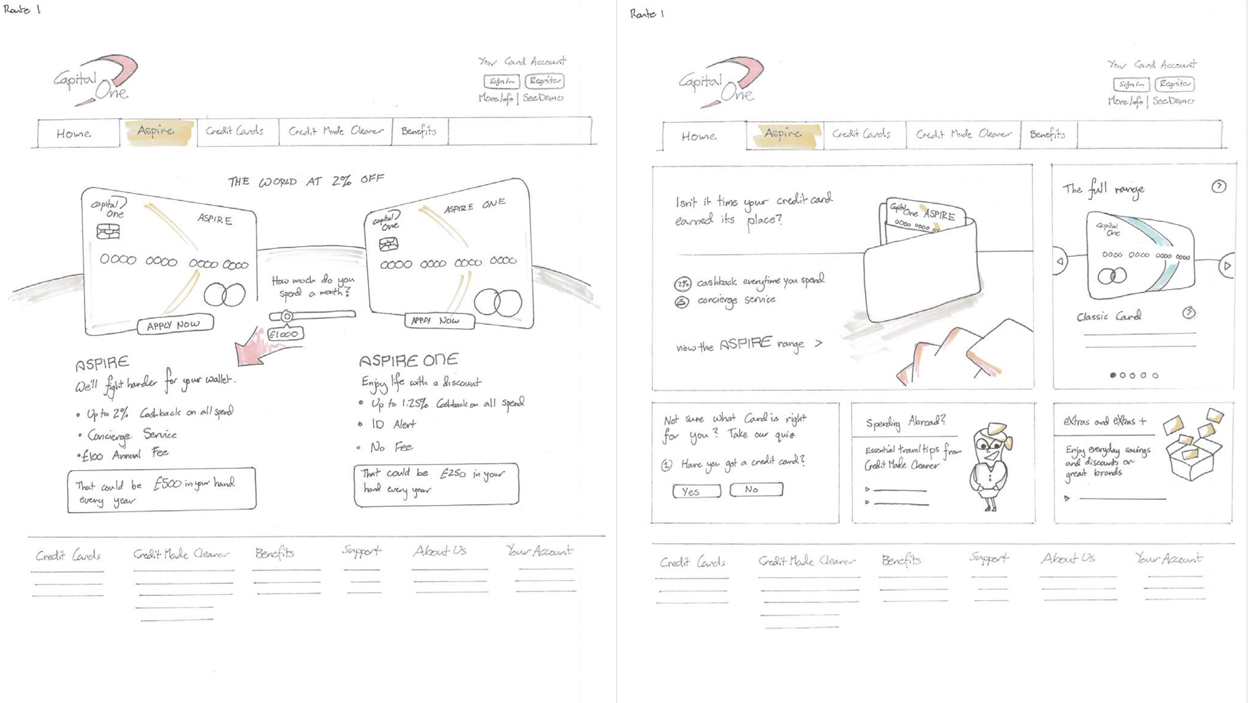 Route 1
Capital One
Your Card Account
Sign In
Register
More Info | See Demo
Home
Aspire
Credit Cards
Credit Made Clearer
Benefits
THE WORLD AT 2% OFF
Capital One
ASPIRE
0000 0000 0000 0000
APPLY NOW
How much do you
spend a month?
£1000
Capital One
ASPIRE ONE
0000 0000 0000 0000
APPLY NOW
ASPIRE
We'll fight harder for your wallet.
• Up to 2% Cashback on all spend
• Concierge Service
• £100 Annual Fee
That could be £500 in your hand
every year
ASPIRE ONE
Enjoy life with a discount
• Up to 1.25% Cashback on all spend
• ID Alert
• No Fee
That could be £250 in your
hand every year
Credit Cards
Credit Made Clearer
Benefits
Support
About Us
Your Account
Route 1
Capital One
Your Card Account
Sign In
Register
More Info | See Demo
Home
Aspire
Credit Cards
Credit Made Clearer
Benefits
Isn't it time your credit card
earned its place?
2% cashback everytime you spend
concierge service
view the ASPIRE range >
Capital One ASPIRE
0000 0000 00
The full range
?
Capital One
0000 0000 0000 0000
Classic Card
?
Not sure what Card is right
for you? Take our quiz
1 Have you got a credit card?
Yes
No
Spending Abroad?
Essential travel tips from
Credit Made Clearer
eXtras and eXtras +
Enjoy everyday savings
and discounts on
great brands
Credit Cards
Credit Made Clearer
Benefits
Support
About Us
Your Account